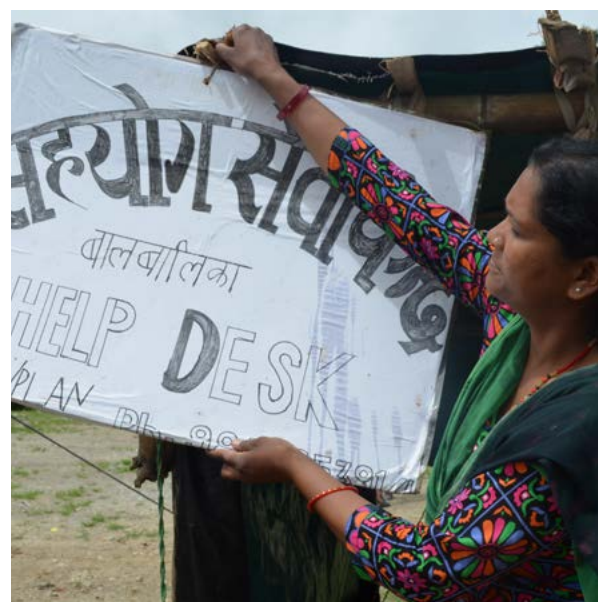 सहयोग सेवा केन्द्र
बालबालिका
HELP DESK
/PLAN
Ph